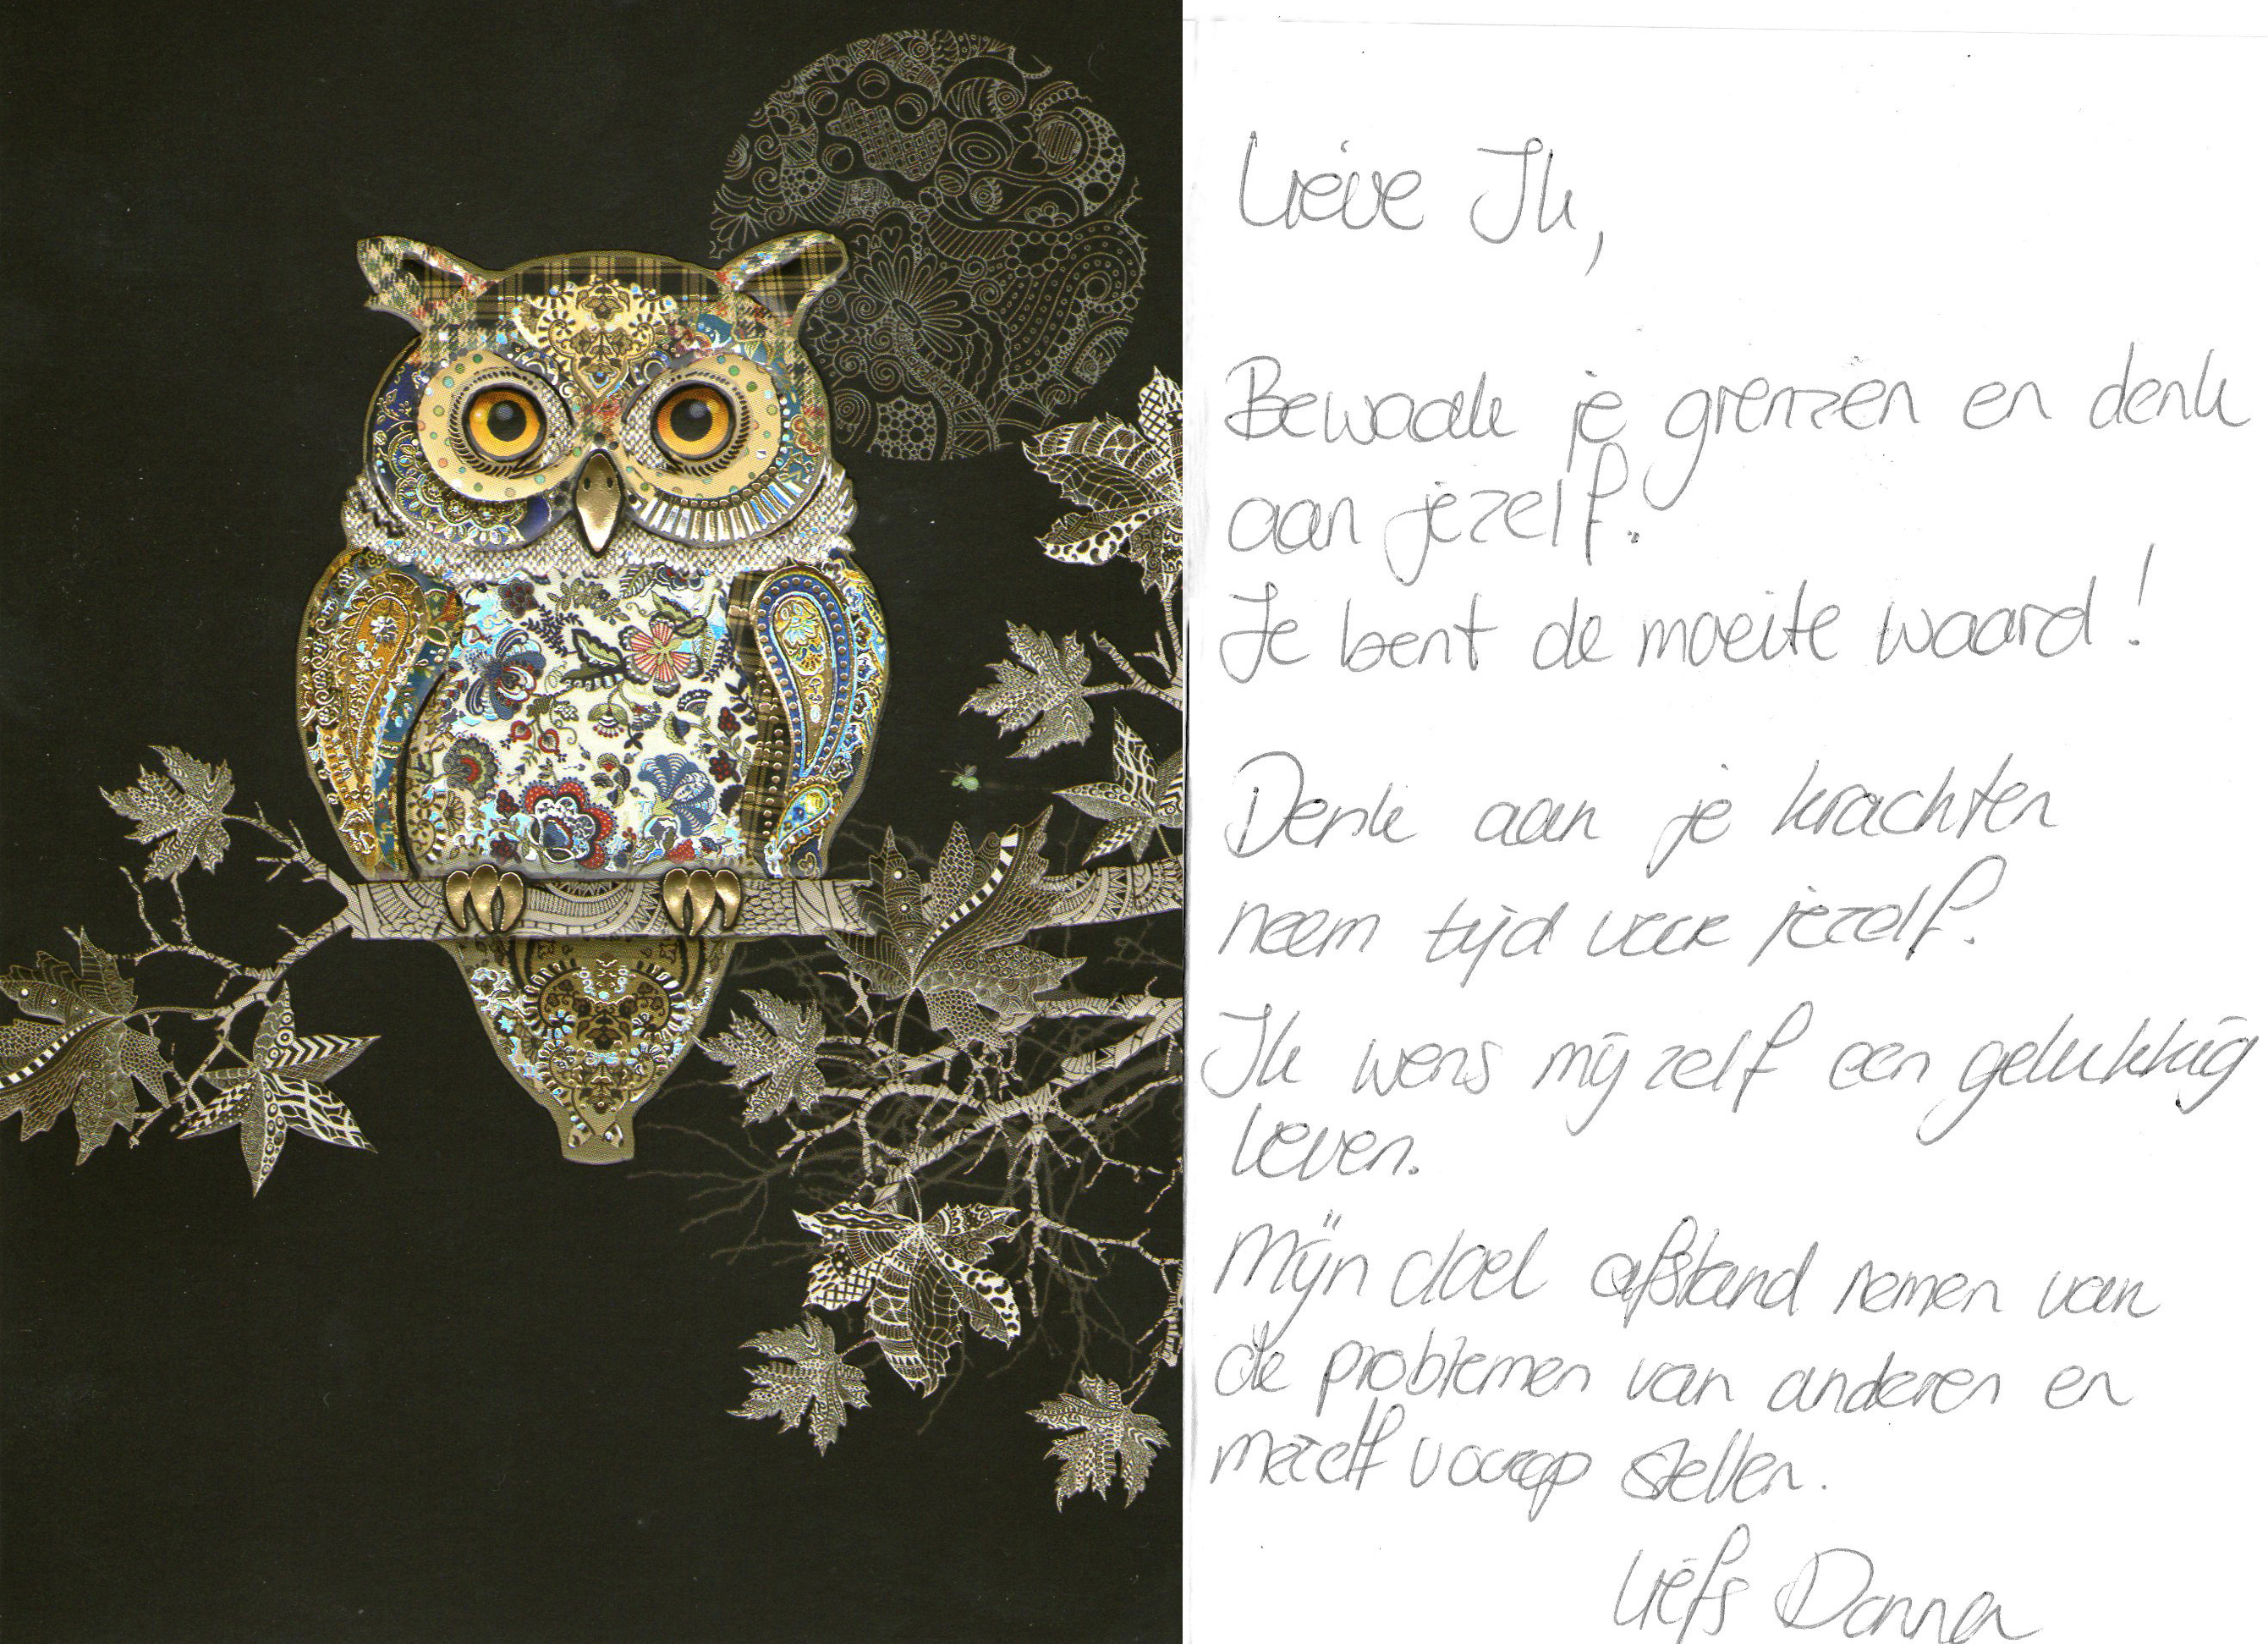 Lieve Ik,
Bewaak je grenzen en denk
aan jezelf.
Je bent de moeite waard!
Denk aan je krachten
neem tijd voor jezelf.
Ik wens mij zelf een gelukkig
leven.
Mijn doel afstand nemen van
de problemen van anderen en
mezelf voorop stellen.
Liefs Donna